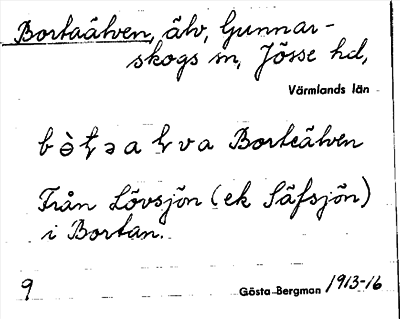 Bortaälven, älv, Gunnar-
skogs sn, Jösse hd,
Värmlands län
Borteälven
Från Lövsjön (ek Säfsjön)
i Bortan.
9 Gösta Bergman 1913-16